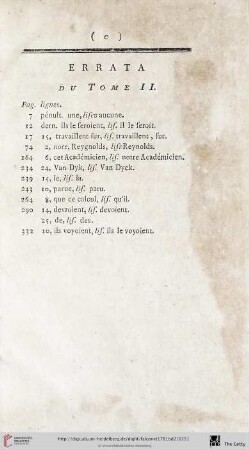 ( o )
ERRATA
DU TOME II.
Pag. lignes.
7 pénult. une, lisez aucune.
12 dern. ils le feroient, lis. il le feroit.
17 15, travaillent sur, lis. travaillent, sur.
74 2, norr. Reygnolds, lis. Reynolds.
164 6, cet Académicien, lis. notre Académicien.
234 24, Van Dyk, lis. Van Dyck.
239 15, le, lis. la.
243 10, paroe, lis. paru.
264 8, que ce colcul, lis. qu'il.
290 14, devroient, lis. devoient.
25, de, lis. des.
332 10, ils voyoient, lis. ils le voyoient.
© Universitätsbibliothek Heidelberg
The Getty